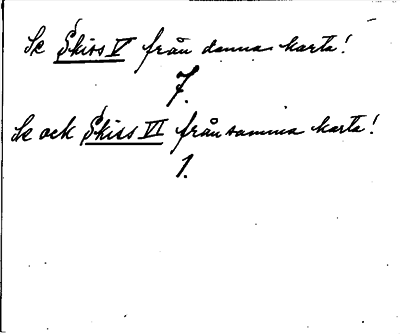 Se Skiss V från denna karta!
7.
Se ock Skiss VI från samma karta!
1.